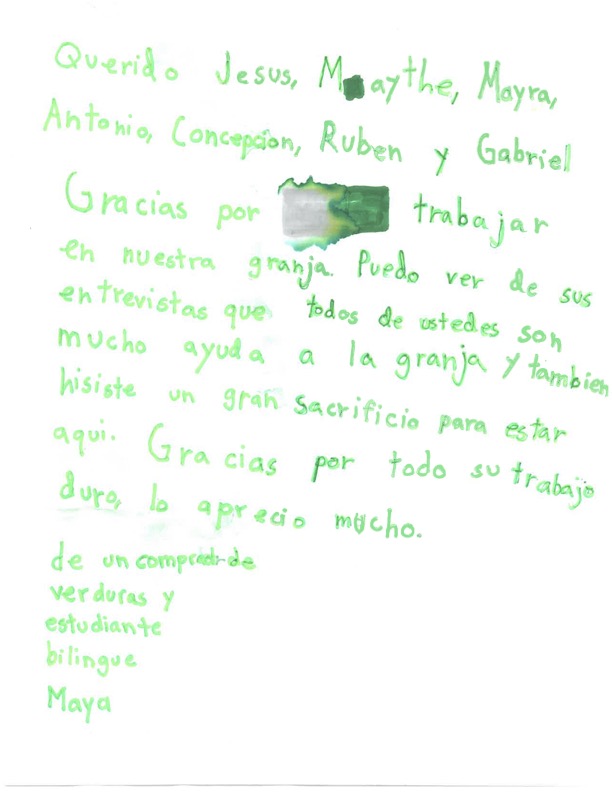 Querido Jesus, Maythe, Mayra,
Antonio, Concepcion, Ruben y Gabriel
Gracias por trabajar
en nuestra granja. Puedo ver de sus
entrevistas que todos de ustedes son
mucho ayuda a la granja y tambien
hisiste un gran sacrificio para estar
aqui. Gracias por todo su trabajo
duro, lo aprecio mucho.
de un comprador de
verduras y
estudiante
bilingue
Maya